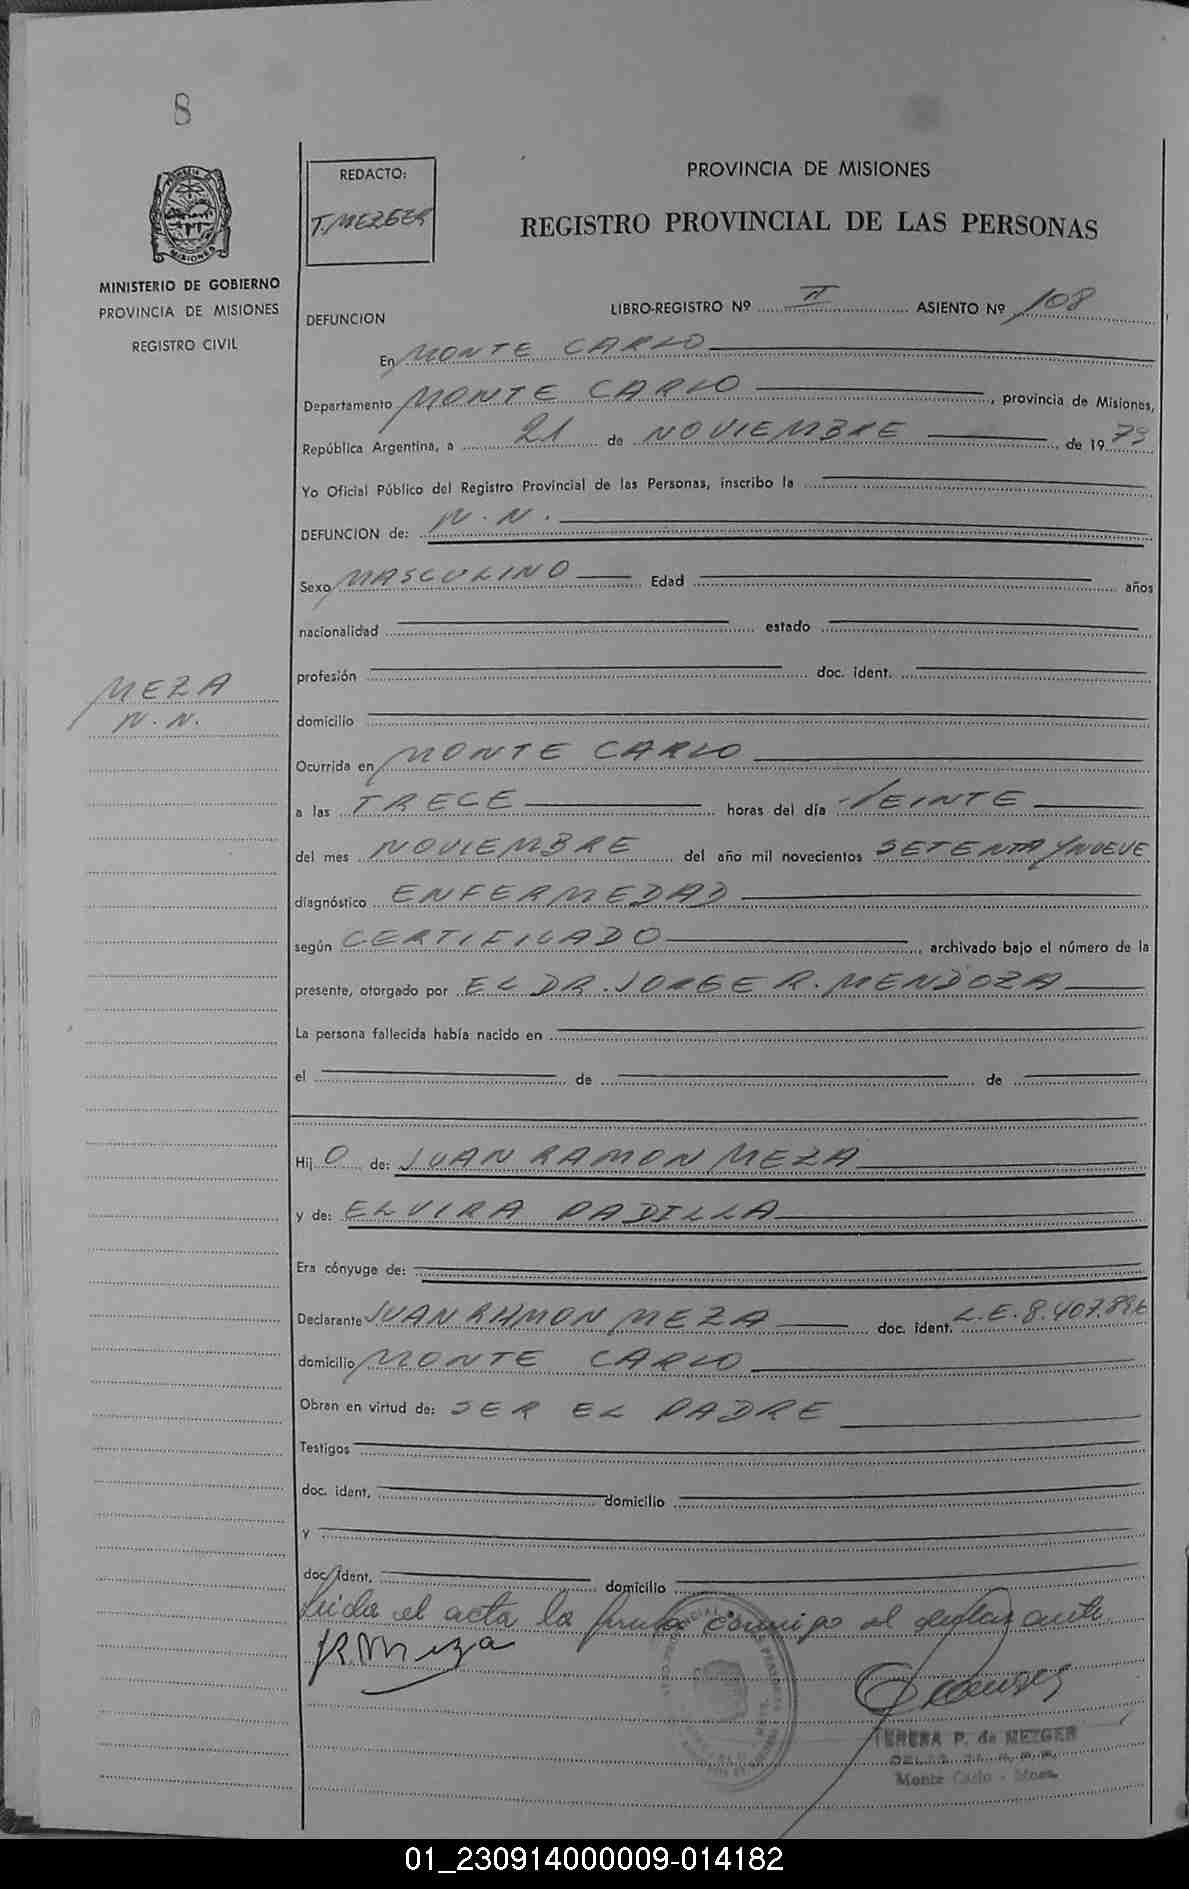 8
MINISTERIO DE GOBIERNO
PROVINCIA DE MISIONES
REGISTRO CIVIL
MEZA
N. N.
REDACTO:
T. MEZGER
PROVINCIA DE MISIONES
REGISTRO PROVINCIAL DE LAS PERSONAS
DEFUNCION LIBRO-REGISTRO Nº II ASIENTO Nº 108
En MONTE CARLO
Departamento MONTE CARLO, provincia de Misiones,
República Argentina, a 21 de NOVIEMBRE de 1979
Yo Oficial Público del Registro Provincial de las Personas, inscribo la
DEFUNCION de: N. N.
Sexo MASCULINO Edad años
nacionalidad estado
profesión doc. ident.
domicilio
Ocurrida en MONTE CARLO
a las TRECE horas del día VEINTE
del mes NOVIEMBRE del año mil novecientos SETENTA Y NUEVE
diagnóstico ENFERMEDAD
según CERTIFICADO, archivado bajo el número de la
presente, otorgado por EL DR. JORGE R. MENDOZA
La persona fallecida había nacido en
el de de
Hij O de: JUAN RAMON MEZA
y de: ELVIRA PADILLA
Era cónyuge de:
Declarante JUAN RAMON MEZA doc. ident. L.E. 8.407.896
domicilio MONTE CARLO
Obran en virtud de: SER EL PADRE
Testigos
doc. ident. domicilio
y
doc. ident. domicilio
Leida el acta la firma conmigo el declarante
J.R. Meza
TERESA P. de METGER
Monte Carlo - Mnes.
01_230914000009-014182